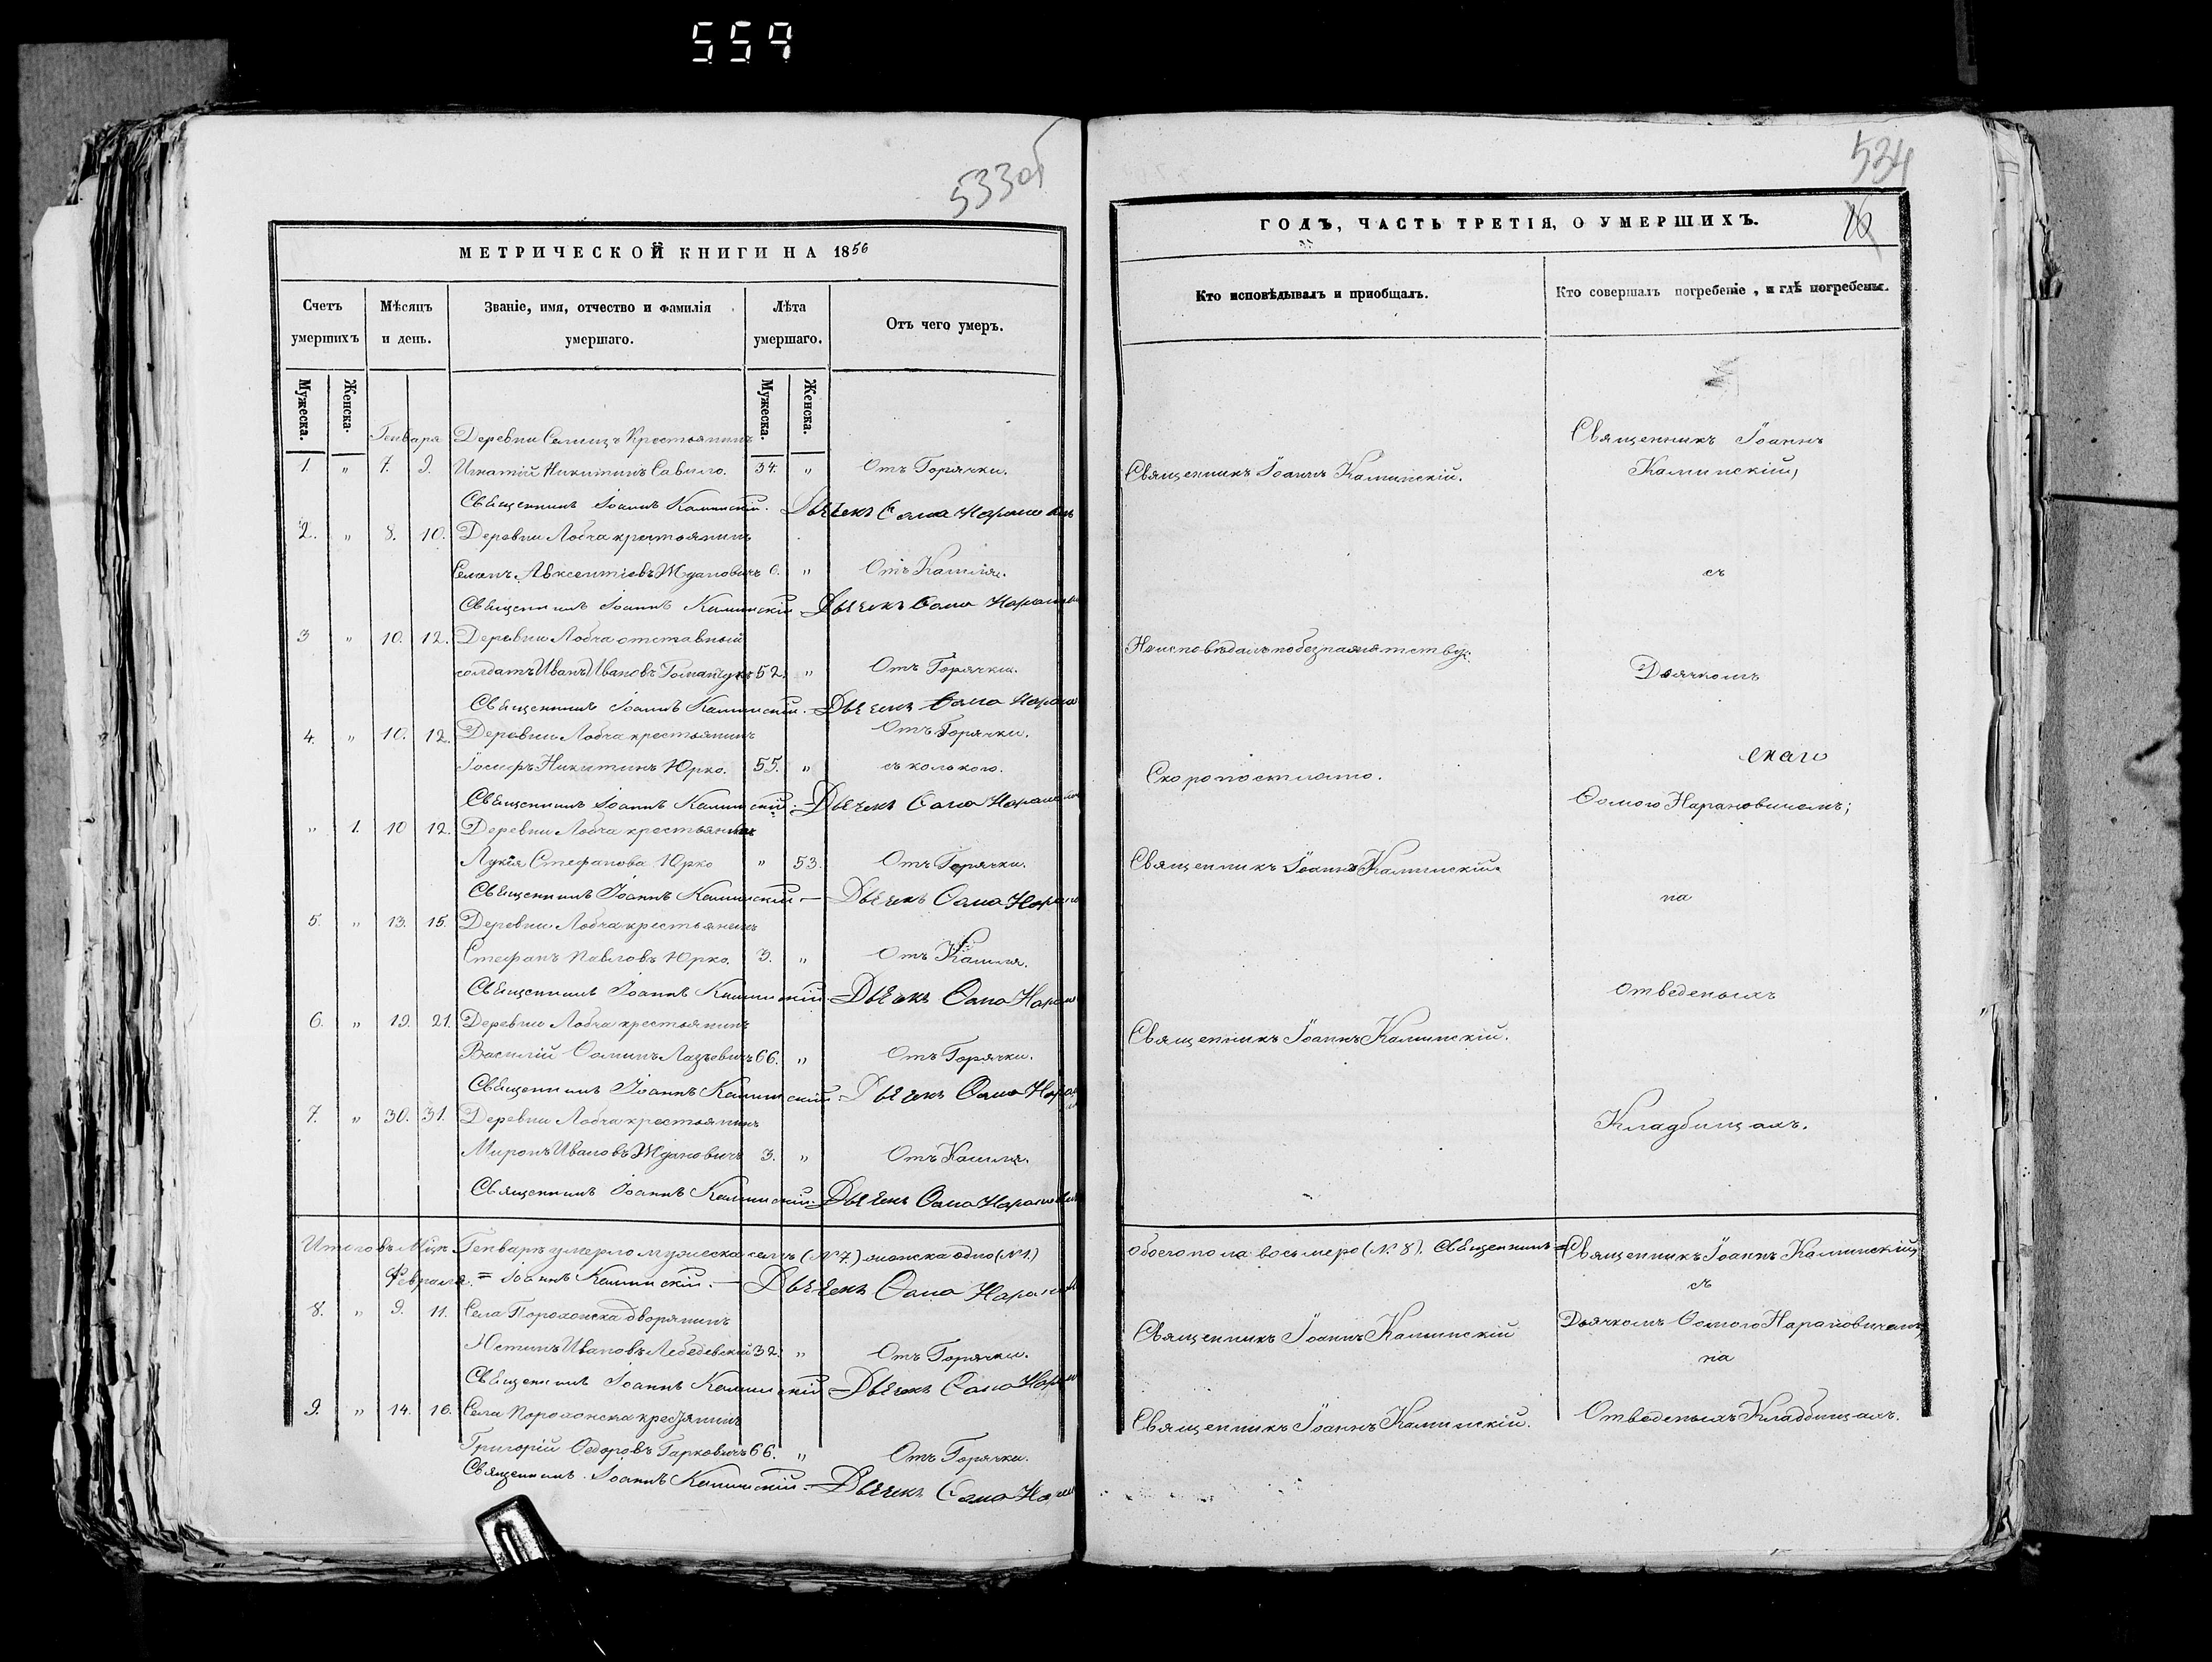 559
533об
МЕТРИЧЕСКОЙ КНИГИ НА 1856
Счетъ умершихъ
Мѣсяцъ и день.
Званіе, имя, отчество и фамилія умершаго.
Лѣта умершаго.
Отъ чего умеръ.
Мужеска.
Женска.
Мужеска.
Женска.
Генваря Деревни Селищъ Крестьянинъ
1. " 7. 9. Игнатій Никитинъ Савило. 34. " Отъ Горячки.
Священникъ Іоаннъ Каминскій. Дьячекъ Ѳома
2. " 8. 10. Деревни Лобча крестьянинъ
Авксентіевъ Ждановичъ 6. " Отъ Кашля.
Священникъ Іоаннъ Каминскій – Дьячекъ Ѳома
3 " 10. 12. Деревни Лобча отставный
солдатъ Иванъ Ивановъ 52. " Отъ Горячки.
Священникъ Іоаннъ Каминскій. – Дьячекъ Ѳома
4. " 10. 12. Деревни Лобча крестьянинъ Отъ Горячки.
Іосифъ Никитинъ Юрко. 55. " съ колькою.
Священникъ Іоаннъ Каминскій. – Дьячекъ Ѳома
" 1. 10 12. Деревни Лобча
Лукія Стефанова Юрко " 53. Отъ Горячки.
Священникъ Іоаннъ Каминскій – Дьячекъ Ѳома
5. " 13. 15. Деревни Лобча крестьянинъ
Стефанъ Павловъ Юрко. 3. " Отъ Кашля.
Священникъ Іоаннъ Каминскій – Дьячекъ Ѳома
6. " 19. 21. Деревни Лобча крестьянинъ
Василій Ѳоминъ Лазъовичъ 66. " Отъ Горячки.
Священникъ Іоаннъ Каминскій – Дьячекъ Ѳома
7. " 30. 31. Деревни Лобча крестьянинъ
Миронъ Ивановъ Ждановичъ 3. " Отъ Кашля.
Священникъ Іоаннъ Каминскій – Дьячекъ Ѳома
Итого въ Мцѣ Генварѣ умерло мужеска семь (№ 7.) женска одно (№ 1.)
Февраля. = Іоаннъ Каминскій. – Дьячекъ Ѳома
8. " 9. 11. Села Порохонска дворянинъ
Юстинъ Ивановъ Лебедевскій 32. " Отъ Горячки.
Священникъ Іоаннъ Каминскій – Дьячекъ Ѳома
9. " 14. 16. Села Порохонска крестьянинъ
Григорій Ѳедоровъ Гарковичъ 66. " Отъ Горячки.
Священникъ Іоаннъ Каминскій. – Дьячекъ Ѳома
534
ГОДЪ, ЧАСТЬ ТРЕТІЯ, О УМЕРШИХЪ.
16
Кто исповѣдывалъ и приобщалъ.
Кто совершалъ погребеніе, и гдѣ погребены.
Священникъ Іоаннъ
Священникъ Іоаннъ Каминскій.
Каминскій,
съ
Дьячкомъ
Скоропостижно.
Ѳомою Нарановичемъ;
Священникъ Іоаннъ Каминскій.
на
отведеныхъ
Священникъ Іоаннъ Каминскій.
Кладбищахъ.
обоего пола восьмеро (№ 8). Священникъ =
Священникъ Іоаннъ Каминскій,
съ
Священникъ Іоаннъ Каминскій
Дьячкомъ Ѳомою Нарановичемъ,
на
Священникъ Іоаннъ Каминскій.
Отведеныхъ Кладбищахъ.